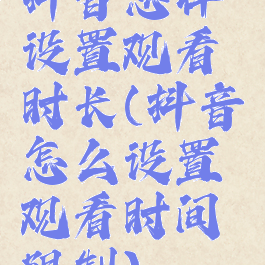 抖音怎样
设置观看
时长(抖音
怎么设置
观看时间
限制)